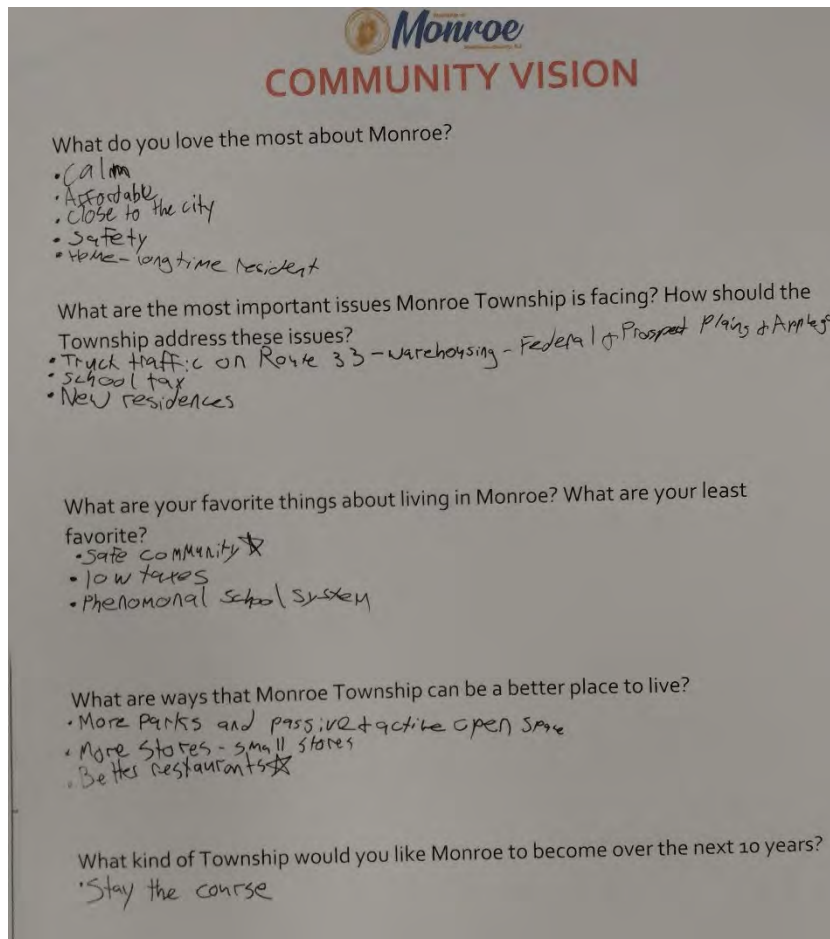 Monroe
COMMUNITY VISION
What do you love the most about Monroe?
• Calm
• Affordable
• Close to the city
• Safety
• Home - long time resident
What are the most important issues Monroe Township is facing? How should the
Township address these issues?
• Truck traffic on Route 33 - warehousing - Federal & Prospect Plains &
• School tax
• New residences
What are your favorite things about living in Monroe? What are your least
favorite?
• Safe community ☆
• low taxes
• Phenomonal school system
What are ways that Monroe Township can be a better place to live?
• More parks and passive + active open space
• More stores - small stores
• Better restaurants ☆
What kind of Township would you like Monroe to become over the next 10 years?
• Stay the course